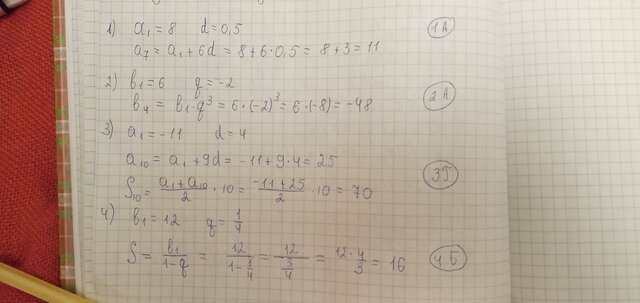 1) a₁ = 8 d = 0,5 1А
a₇ = a₁ + 6d = 8 + 6·0,5 = 8 + 3 = 11
2) b₁ = 6 q = -2
b₄ = b₁·q³ = 6·(-2)³ = 6·(-8) = -48 2А
3) a₁ = -11 d = 4
a₁₀ = a₁ + 9d = -11 + 9·4 = 25
S₁₀ = (a₁ + a₁₀)/2 · 10 = (-11 + 25)/2 · 10 = 70 3Г
4) b₁ = 12 q = 1/4
S = b₁/(1-q) = 12/(1-1/4) = 12/(3/4) = 12·4/3 = 16 4Б